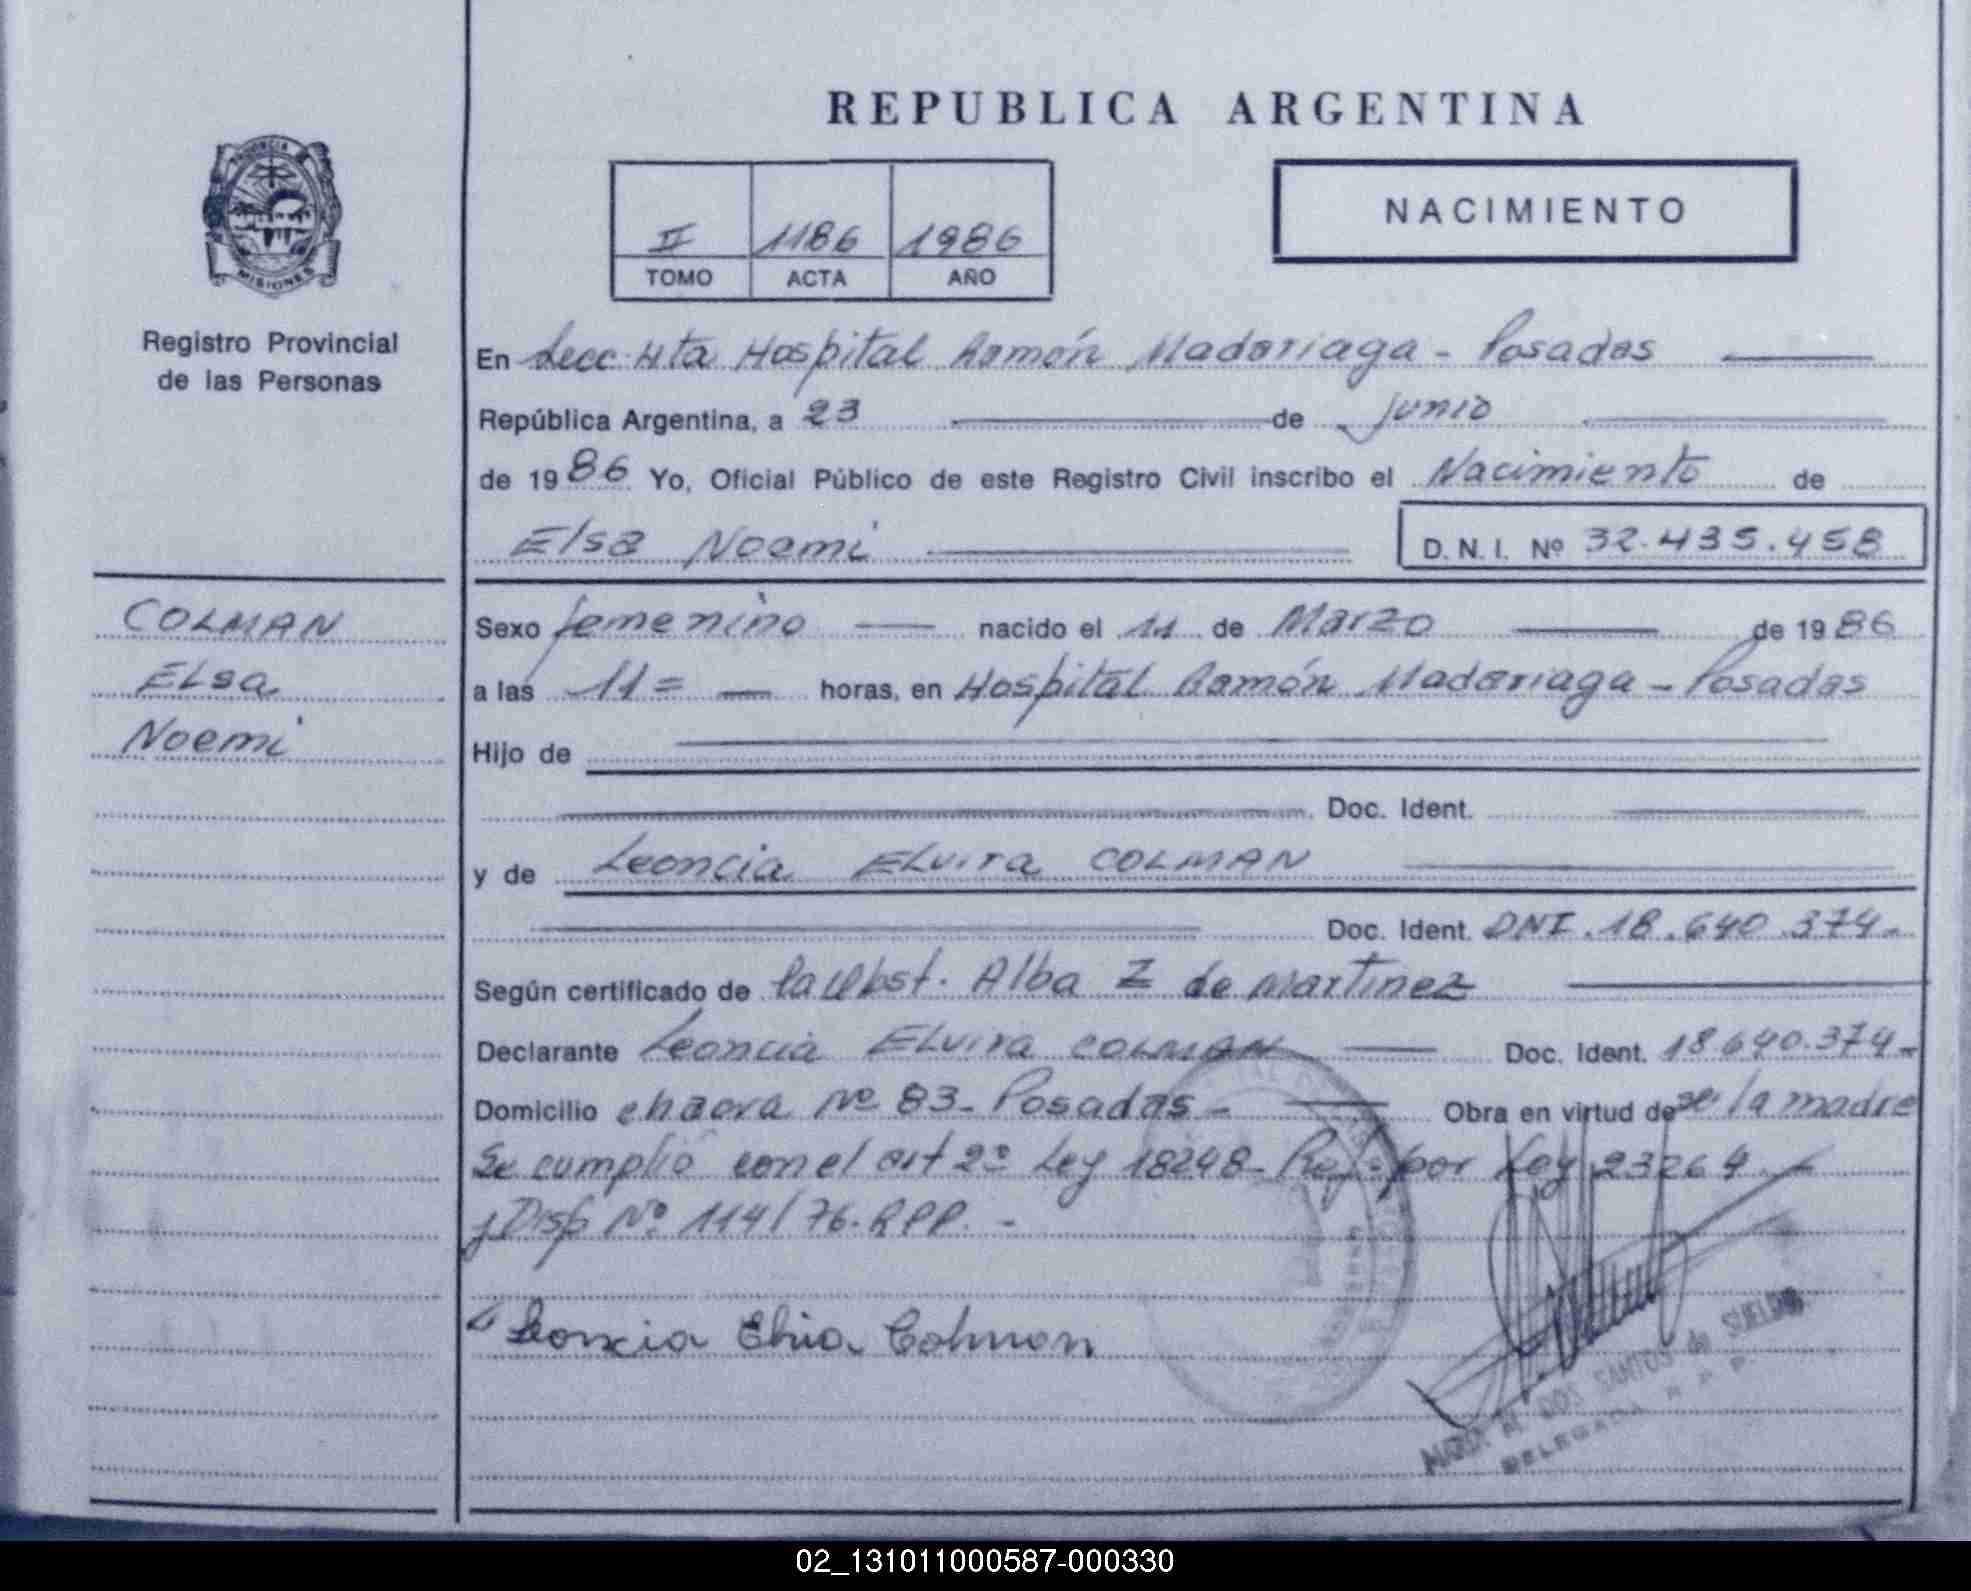 REPUBLICA ARGENTINA
PROVINCIA
MISIONES
Registro Provincial
de las Personas
II 1186 1986
TOMO ACTA AÑO
NACIMIENTO
En Secc. 4ta Hospital Ramón Madariaga - Posadas
República Argentina, a 23 de junio
de 1986 Yo, Oficial Público de este Registro Civil inscribo el Nacimiento de
Elsa Noemi D. N. I. Nº 32.435.458
COLMAN
ELsa
Noemi
Sexo femenino nacido el 11 de Marzo de 1986
a las 11= horas, en Hospital Ramón Madariaga - Posadas
Hijo de
Doc. Ident.
y de Leoncia ELvira COLMAN
Doc. Ident. DNI. 18.640.374-
Según certificado de la Obst. Alba Z de Martinez
Declarante Leoncia ELvira COLMAN Doc. Ident. 18640.374-
Domicilio chacra Nº 83- Posadas - Obra en virtud de la madre
Se cumplió con el art 2º Ley 18248- Ref. por Ley 23264
y Disp Nº 114/76-RPP. -
Leoncia Elvira Colman
MARIA DOS SANTOS de SUELDO
DELEGADA R P P
02_131011000587-000330